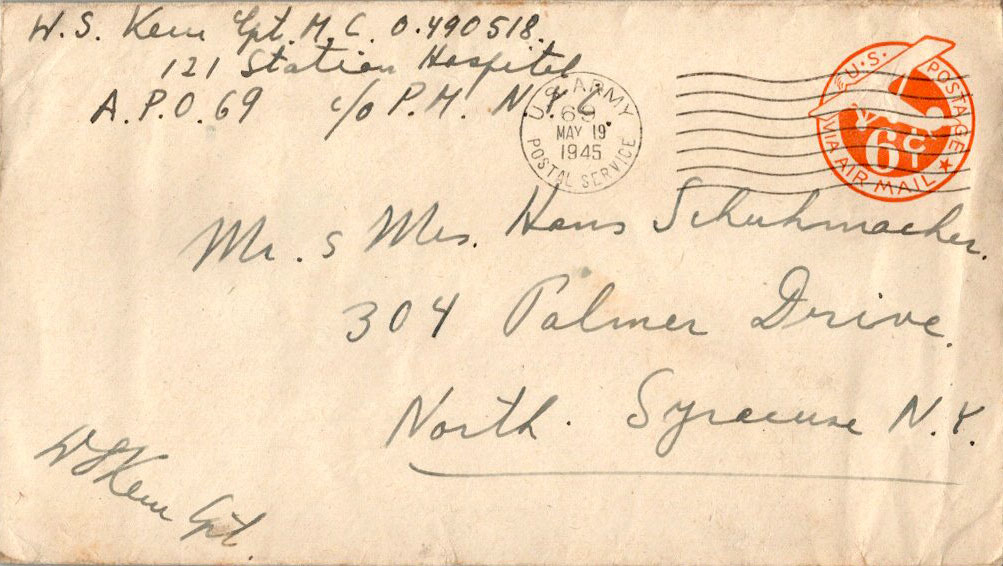 W. S. Kern Cpt. M. C. O.490518.
121 Station Hospital
A.P.O. 69 c/o P.M. N.Y.C.
U.S. ARMY
69
MAY 19
1945
POSTAL SERVICE
U.S. POSTAGE
6¢
VIA AIR MAIL
Mr. & Mrs. Hans Schuhmacher.
304 Palmer Drive.
North. Syracuse N.Y.
W S Kern Cpt.